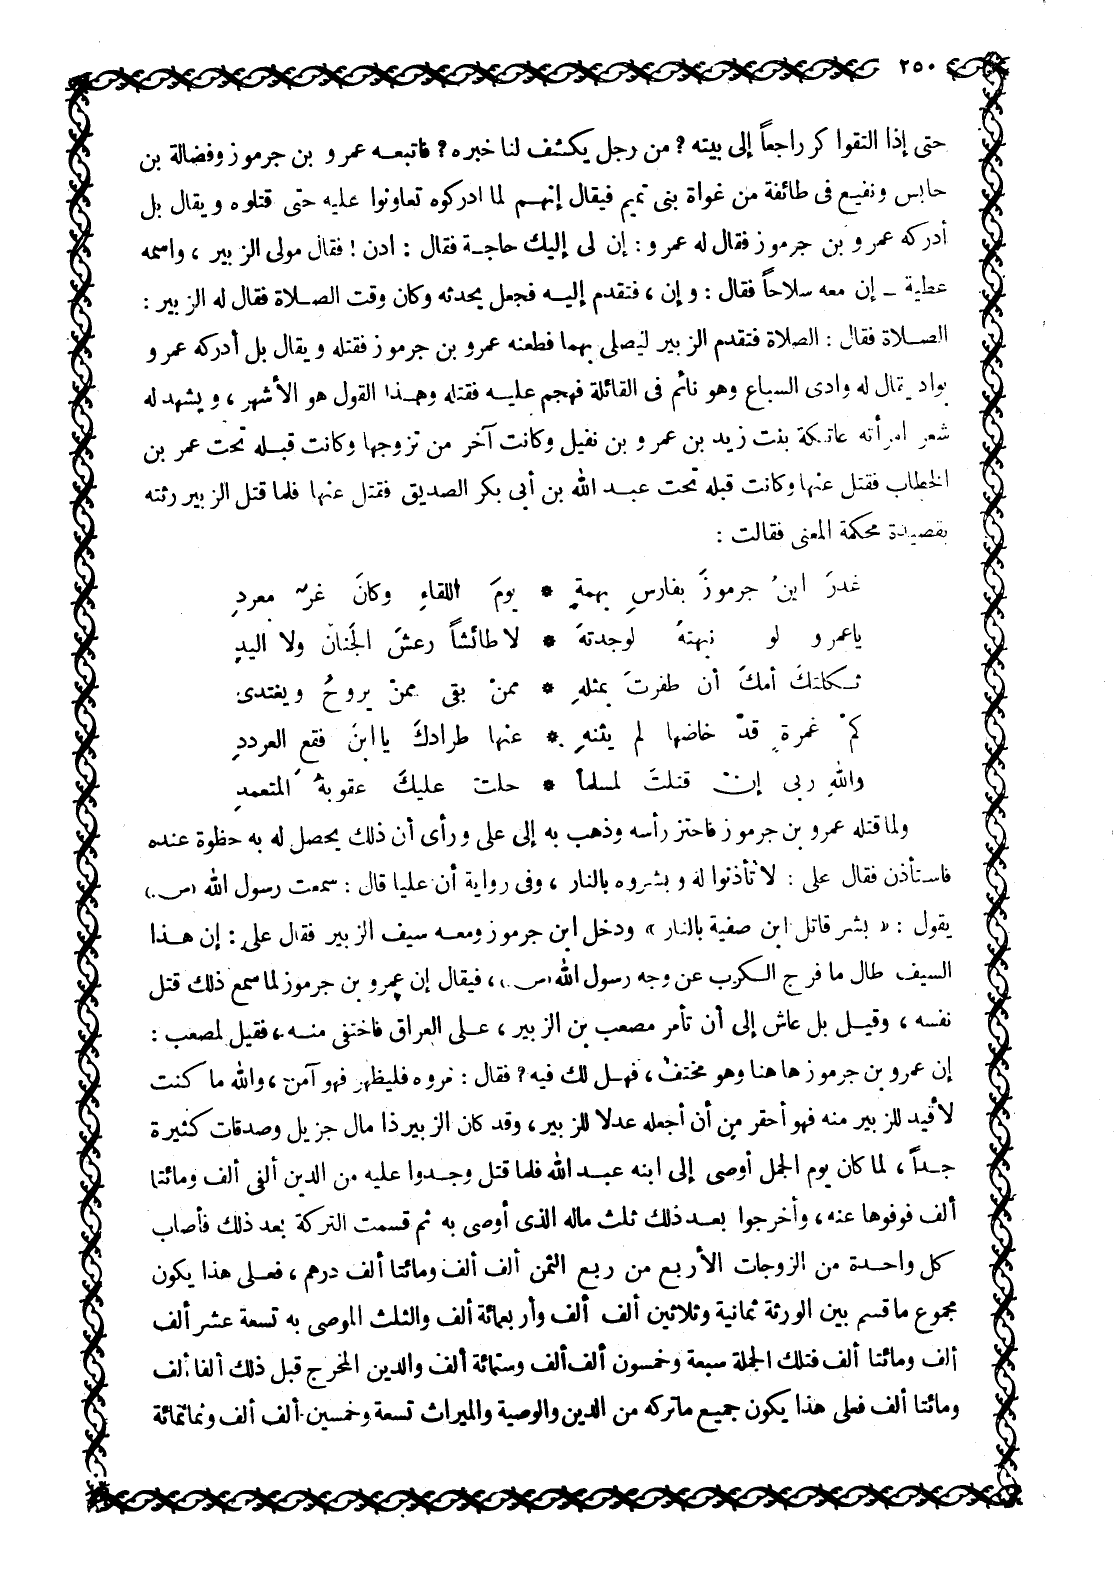 ٢٥٠
حتى إذا التقوا كر راجعاً إلى بيته ? من رجل يكشف لنا خبره ? فاتبعه عمرو بن جرموز وفضالة بن
حابس ونفيع فى طائفة من غواة بنى تميم فيقال إنهم لما ادركوه تعاونوا عليه حتى قتلوه ويقال بل
أدركه عمرو بن جرموز فقال له عمرو : إن لى إليك حاجة فقال : ادن ! فقال مولى الزبير ، واسمه
عطية _ إن معه سلاحاً فقال : وإن ، فتقدم إليه فجعل يحدثه وكان وقت الصلاة فقال له الزبير :
الصلاة فقال : الصلاة فتقدم الزبير ليصلى بهما فطعنه عمرو بن جرموز فقتله ويقال بل أدركه عمرو
بواد يقال له وادى السباع وهو نائم فى القائلة فهجم عليه فقتله وهذا القول هو الأشهر ، ويشهد له
شعر امرأته عاتكة بنت زيد بن عمرو بن نفيل وكانت آخر من تزوجها وكانت قبله تحت عمر بن
الخطاب فقتل عنها وكانت قبله تحت عبد الله بن أبى بكر الصديق فقتل عنها فلما قتل الزبير رثته
بقصيدة محكمة المعنى فقالت :
غدرَ ابنُ جرموزَ بفارسِ بهمةٍ * يومَ اللقاءِ وكانَ غرّ معردِ
ياعمرو لو نبهتهُ لوجدتهَ * لا طائشاً رعشَ الجَنان ولا اليدِ
ثكلتكَ أمكَ أن ظفرتَ بمثلهِ * ممنْ بقى ممنْ يروحُ ويغتدى
كمْ غمرةٍ قدْ خاضها لم يثنهِ * عنها طرادكَ ياابنَ فقع العرددِ
واللهِ ربى إنْ قتلتَ لمسلماً * حلت عليكَ عقوبةُ المتعمدِ
ولما قتله عمرو بن جرموز فاحتز رأسه وذهب به إلى على ورأى أن ذلك يحصل له به حظوة عنده
فاستأذن فقال على : لا تأذنوا له وبشروه بالنار ، وفى رواية أن عليا قال : سمعت رسول الله (ص.)
يقول : « بشر قاتل ابن صفية بالنار » ودخل ابن جرموز ومعه سيف الزبير فقال على : إن هذا
السيف طال ما فرج الكرب عن وجه رسول الله (ص.) ، فيقال إن عمرو بن جرموز لما سمع ذلك قتل
نفسه ، وقيل بل عاش إلى أن تأمر مصعب بن الزبير ، على العراق فاختفى منه ، فقيل لمصعب :
إن عمرو بن جرموز هاهنا وهو مختف ، فهل لك فيه ? فقال : مروه فليظهر فهو آمن ، والله ما كنت
لأقيد للزبير منه فهو أحقر من أن أجعله عدلا للزبير ، وقد كان الزبير ذا مال جزيل وصدقات كثيرة
جداً ، لما كان يوم الجمل أوصى إلى ابنه عبد الله فلما قتل وجدوا عليه من الدين ألفى ألف ومائتا
ألف فوفوها عنه ، وأخرجوا بعد ذلك ثلث ماله الذى أوصى به ثم قسمت التركة بعد ذلك فأصاب
كل واحدة من الزوجات الأربع من ربع الثمن ألف ألف ومائتا ألف درهم ، فعلى هذا يكون
مجموع ما قسم بين الورثة ثمانية وثلاثين ألف ألف وأربعمائة ألف والثلث الموصى به تسعة عشر ألف
ألف ومائتا ألف فتلك الجملة سبعة وخمسون ألف ألف وستمائة ألف والدين المخرج قبل ذلك ألفا ألف
ومائتا ألف فعلى هذا يكون جميع ماتركه من الدين والوصية والميراث تسعة وخمسين ألف ألف وثمانمائة